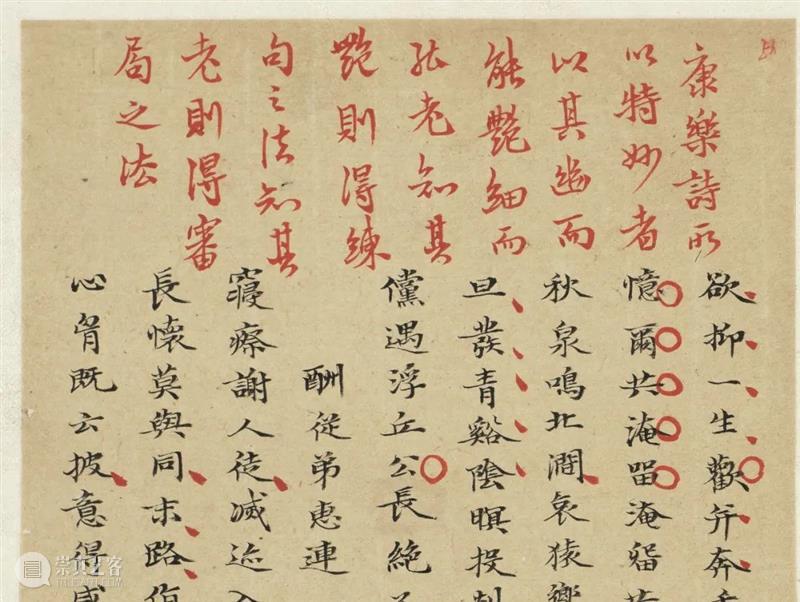 康樂詩所
以特妙者
以其幽而
能艷細而
能老知其
艷則得練
句之法知其
老則得審
局之法
欲抑一生歡并奔
憶爾共淹留淹留昔
秋泉鳴北澗哀猿響
旦發青谿陰暝投剡
儻遇浮丘公長絕
酬從弟惠連
寢瘵謝人徒滅迹入
長懷莫與同末路值
心胷既云披意得咸
崇真艺客